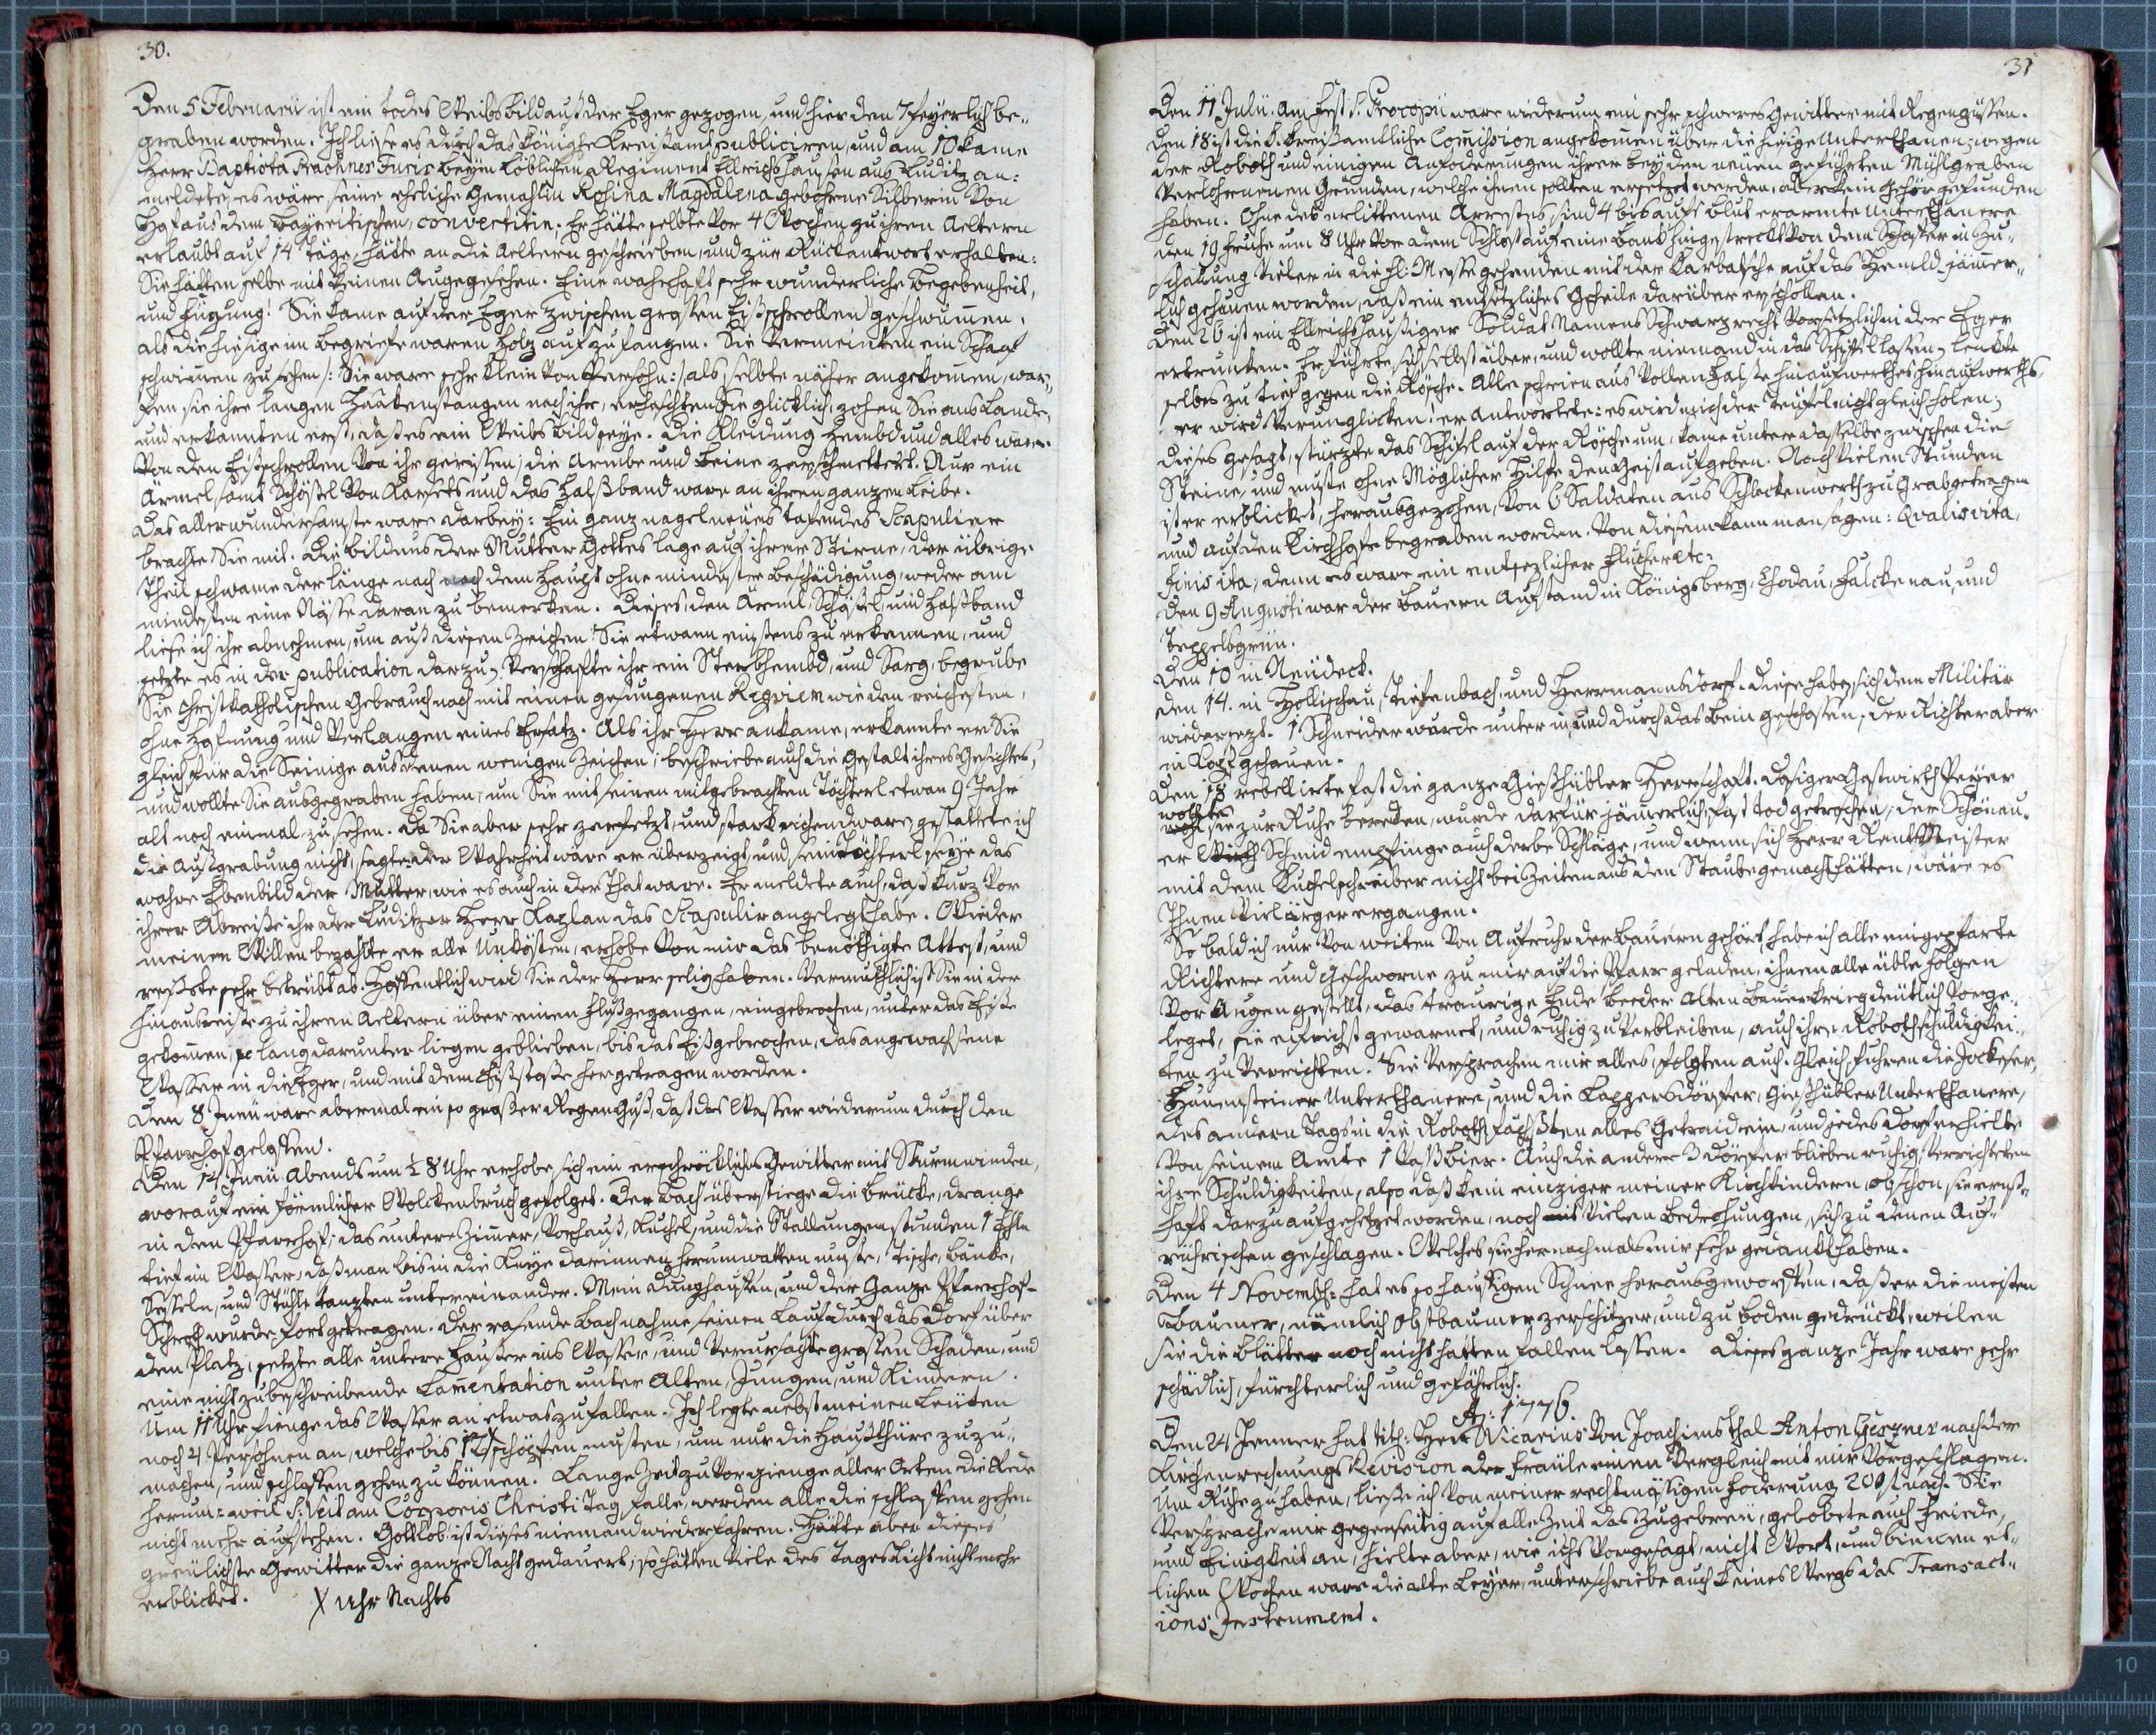 30.
Den 5 Februarii ist ein todes Weibsbild aus der Eger gezogen, und hier den 7 feyerlich be-
graben worden. Ich liese es durch das königl: Kreißamt publiciren, und am 10 kame
Herr Baptista Prachner Furir beym Löblichen Regiment Ellrichshausen aus Luditz an:
meldete, es wäre seine eheliche Gemahlin Rosina Magdalena gebohrne Silberin von
Hof aus dem Bayreitischen, convertitin; Er hätte selbte vor 4 Wochen zu ihren Aeltern
erlaubt auf 14 Täge, hätte an die Aeltern geschrieben, und zur Rückantwort erhalten:
Sie hätten selbe mit keinen Aug gesehen. Eine wahrhaft sehr wunderliche Begebenheit,
und Fügung! Sie kame auf der Eger zwischen grossen Eißschrollen geschwummen,
als die hiesige im Begriefe waren Holz aufzufangen. Sie vermeinten ein Schaaf
schwimen zu sehen /: Sie ware sehr klein von Persohn:/ als selbte näher angekomen, war-
fen sie ihre langen Haakenstangen nach ihr, erhaschten Sie glücklich, zohen Sie ans Lande,
und erkannten erst, daß es ein Weibsbild seye. Die Kleidung Hembd und alles ware
von den Eißschrollen von ihr gerissen, die Armbe und Beine zerschmettert. Nur ein
Ärmel samt Schössel von Korsets und das Halsband ware an ihren ganzen Leibe.
Das allerwundersamste ware darbey: Ein ganz nagelneues tafendes Scapulier
brachte Sie mit. Die Bildnus der Mutter Gottes lage auf ihrer Stirne, der übrige
Theil schwame der länge nach nach dem Haupt ohne mindester Beschädigung, weder am
mindesten eine Nässe daran zu bemerken. Dieses, den Ärml, Schössel, und Halsband
liese ich ihr abnehmen, um auß diesen Zeichen Sie etwann einstens zu erkennen, und
setzte es in der publication darzu, verschafte ihr ein Sterbhembd, und Sarg, begrube
Sie Christkatholischen Gebrauch nach mit einen gesungenen Reqviem wie den reichesten,
ohne Hofnung und Verlangen eines Ersatz. Als ihr Herr ankame, erkannte er Sie
gleich für die Seinige aus denen wenigen Zeichen, beschriebe auch die Gestalt ihres Gesichtes,
und wollte Sie ausgegraben haben, um Sie mit seinen mitgebrachten Töchterl etwan 9 Jahr
alt noch einmal zu sehen. Da Sie aber sehr zerfetzt, und stark riechend ware, gestattete ich
die Außgrabung nicht, sagte: der Wahrheit wäre er überzeigt und sein Töchterl seye das
wahre Ebenbild der Mutter, wie es auch in der That ware. Er meldete auch, daß kurz vor
ihrer Abreiße ihr der Luditzer Herr Kaplan das Scapulir angelegt habe. Wieder
meinen Willen bezahlte er alle Unkösten, erhobe von mir das benöthigte Attest, und
reißte sehr betrübt ab. Hoffentlich wird Sie der Herr selig haben. Vermuthlich ist Sie in der
Hinausreise zu ihren Aeltern über einen Fluß gegangen, eingebrochen, unter das Eiß
gekomen, so lang darunter liegen geblieben, bis das Eiß gebrochen, das angewachsene
Wasser in die Eger, und mit dem Eißstosse hergetragen worden.
Den 8 Junii ware abermal ein so großer Regen Guß, daß das Wasser wiederum durch den
Pfarrhof geloffen.
Den 14 Junii Abends um ½ 8 Uhr erhobe sich ein erschröckliches Gewitter mit Sturmwinden,
worauf ein förmlicher Wolckenbruch gefolget. Der Bach überstiege die Brücke, drange
in den Pfarrhof; das untere Zimer, Vorhauß, Kuchel, und die Stallungen stunden 1 Ehle
tief im Wasser, daß man bis in die Kniye darinnen herumwatten muste, Tische, Bänke,
Sesseln, und Stühle tanzten untereinander. Mein Dunghauffen, und der Ganze Pfarrhof-
Schrott wurde fortgetragen. Der rasende Bach nahme seinen Lauf durch das Dorf über
den Platz, setzte alle untere Häußer ins Wasser, und verursachte grossen Schaden, und
eine nicht zu beschreibende Lamentation unter Alten, Jungen, und Kindern.
Um 11 Uhr fienge das Wasser an etwas zu fallen. Ich legte nebst meinen Leuten
noch 4 Persohnen an, welche bis 12 X schöpfen musten, um nur die Haußthüre zuzu-
machen, und schlaffen gehen zu können. Lange Zeit zuvor gienge aller Orten die Rede
herum: weil S: Veit am Corporis Christi Tag falle, werden alle die schlaffen gehen
nicht mehr aufstehen. Gottlob ist dieses niemand wiederfahren. Hätte aber dieses
greulichste Gewitter die ganze Nacht gedauert, so hätten viele des Tages Licht nicht mehr
erblicket. X Uhr Nachts
31
Den 11 Julii. Am Fest S. Procopii ware wiederum ein sehr schweres Gewitter mit Regengüssen.
Den 18 ist die k. Kreißamtliche Comission angekomen über die hiesige Unterthanen, wegen
der Roboth und einigen Anfoderungen ihrer bey den neuen geführten Mühlgraben
verlohrnenen Gründen, welche ihnen sollten ersetzet werden, aber kein Gehör gefunden
haben. Ohne des erlittenen Arrestes, sind 4 bis aufs Blut erarmte Unterthanere
den 19 Frühe um 8 Uhr vor dem Schloß auf eine Bank hingestreckt von dem Schaffer in Zu-
schauung vieler in die hl: Messe gehenden mit der Karbatsche auf das Hemld jämer-
lich gehauen worden, daß ein entsetzliches Geheile darüber erschollen.
Den 26 ist ein Ellrichshaußiger Soldat Namens Schwarz recht vorsetzlich in der Eger
ertrunken. Er führte sich selbst über, und wollte niemand in das Schiffel lassen, lenkte
selbes zu tief gegen die Rösche. Alle schreien aus vollen Halse hinaufwerths, hinaufwerths,
er wird verunglicken; er antwortete: es wird mich der Teufel nicht gleich holen;
dieses gesagt, stürzte das Schifel auf der Rösche um, kame unter dasselbe zwischen die
Steine, und muste ohne Möglicher Hilfe den Geist aufgeben. Nach vielen Stunden
ist er erblicket, herausgezohen, von 6 Saldaten aus Schlackenwerth zu Grab getragen
und auf den Kirchhofe begraben worden. Von diesem kann man sagen: Qvalis vita,
Finis ita, denn es ware ein entsezlicher Flucher etc:
Den 9 Augusti war der Bauern Aufstand in Königsberg, Chodau, Falckenau, und
Teppelsgrün.
Den 10 in Neudeck.
Den 14. in Hollischau, Tiefenbach, und Herrmannsdorf. Diese haben sich dem Militär
wiedersezt. 1 Schneider wurde unter in, und durch das Bein geschossen, der Richter aber
in Kopf gehauen.
Den 18 rebellirte fast die ganze Gießhübler Herrschaft. Dasiger Gastwirth Peyer
wollte
sie zur Ruhe bereden, wurde darfür jämerlich, fast tod getrochen, der Schönau-
er Schmid empfinge auch derbe Schläge, und wenn sich Herr RentMeister
mit dem Kuchelschreiber nicht bei Zeiten aus den Staube gemacht hätten, wäre es
Ihnen viel ärger ergangen.
So bald ich nur von weiten von Aufruhr der Bauern gehört, habe ich alle eingepfarte
Richtere und Geschworne zu mir auf die Pfarr geladen, ihnen alle üble Folgen
vor Augen gestellt, das traurige Ende beeder Alten Bauerkrieg deutlich vorge-
leget, sie eifrichst gewarnet, und ruhig zu verbleiben, auch ihre Robothschuldigkei-
ten zu verrichten. Sie versprachen mir alles, folgten auch. Gleich fuhren die Jokeser,
Hauensteiner Unterthanere, und die Lappersdörfer, Gießhübler Unterthanere,
des andern Tags in die Roboth, fechsten alles Getraid ein, und jedes Dorf erhielte
von seinem Amte 1 Vaß Bier. Auch die andere 3 Dörfer blieben ruhig, verrichteten
ihre Schuldigkeiten, also daß kein einziger meiner Kirchkindern, obschon sie ernst-
haft darzu aufgehetzet worden, noch mit vielen Bedrohungen, sich zu denen Auf-
rührischen geschlagen. Welches sie hernachmals mir sehr gedankt haben.
Den 4 Novemb: hat es so häuffigen Schnee herausgeworffen, daß er die meisten
Baumer, nämlich Obstbaumer zerschitzer, und zu Boden gedrückt, weilen
sie die Blätter noch nicht hatten fallen lassen. Dieses ganze Jahr ware sehr
schädlich, fürchterlich und gefährlich.
A: 1776.
Den 24 Jenner hat titl: Herr Vicarius von Joachimsthal Anton nach der
Kirchenrechnungs Revision der Fräule einen Vergleich mit mir vorgeschlagen.
Um Ruhe zu haben, ließe ich von meiner rechtmässigen Foderung 200 f nach. Sie
versprache mir gegenseitig auf alle Zeit das Zugebreu, gelobete auch Friede,
und Einigkeit an, hielte aber, wie ichs vorgesagt, nicht Wort, und binnen et-
lichen Wochen ware die alte Leyer, unterschriebe auch keines Wegs das Transact-
ions Instrument.